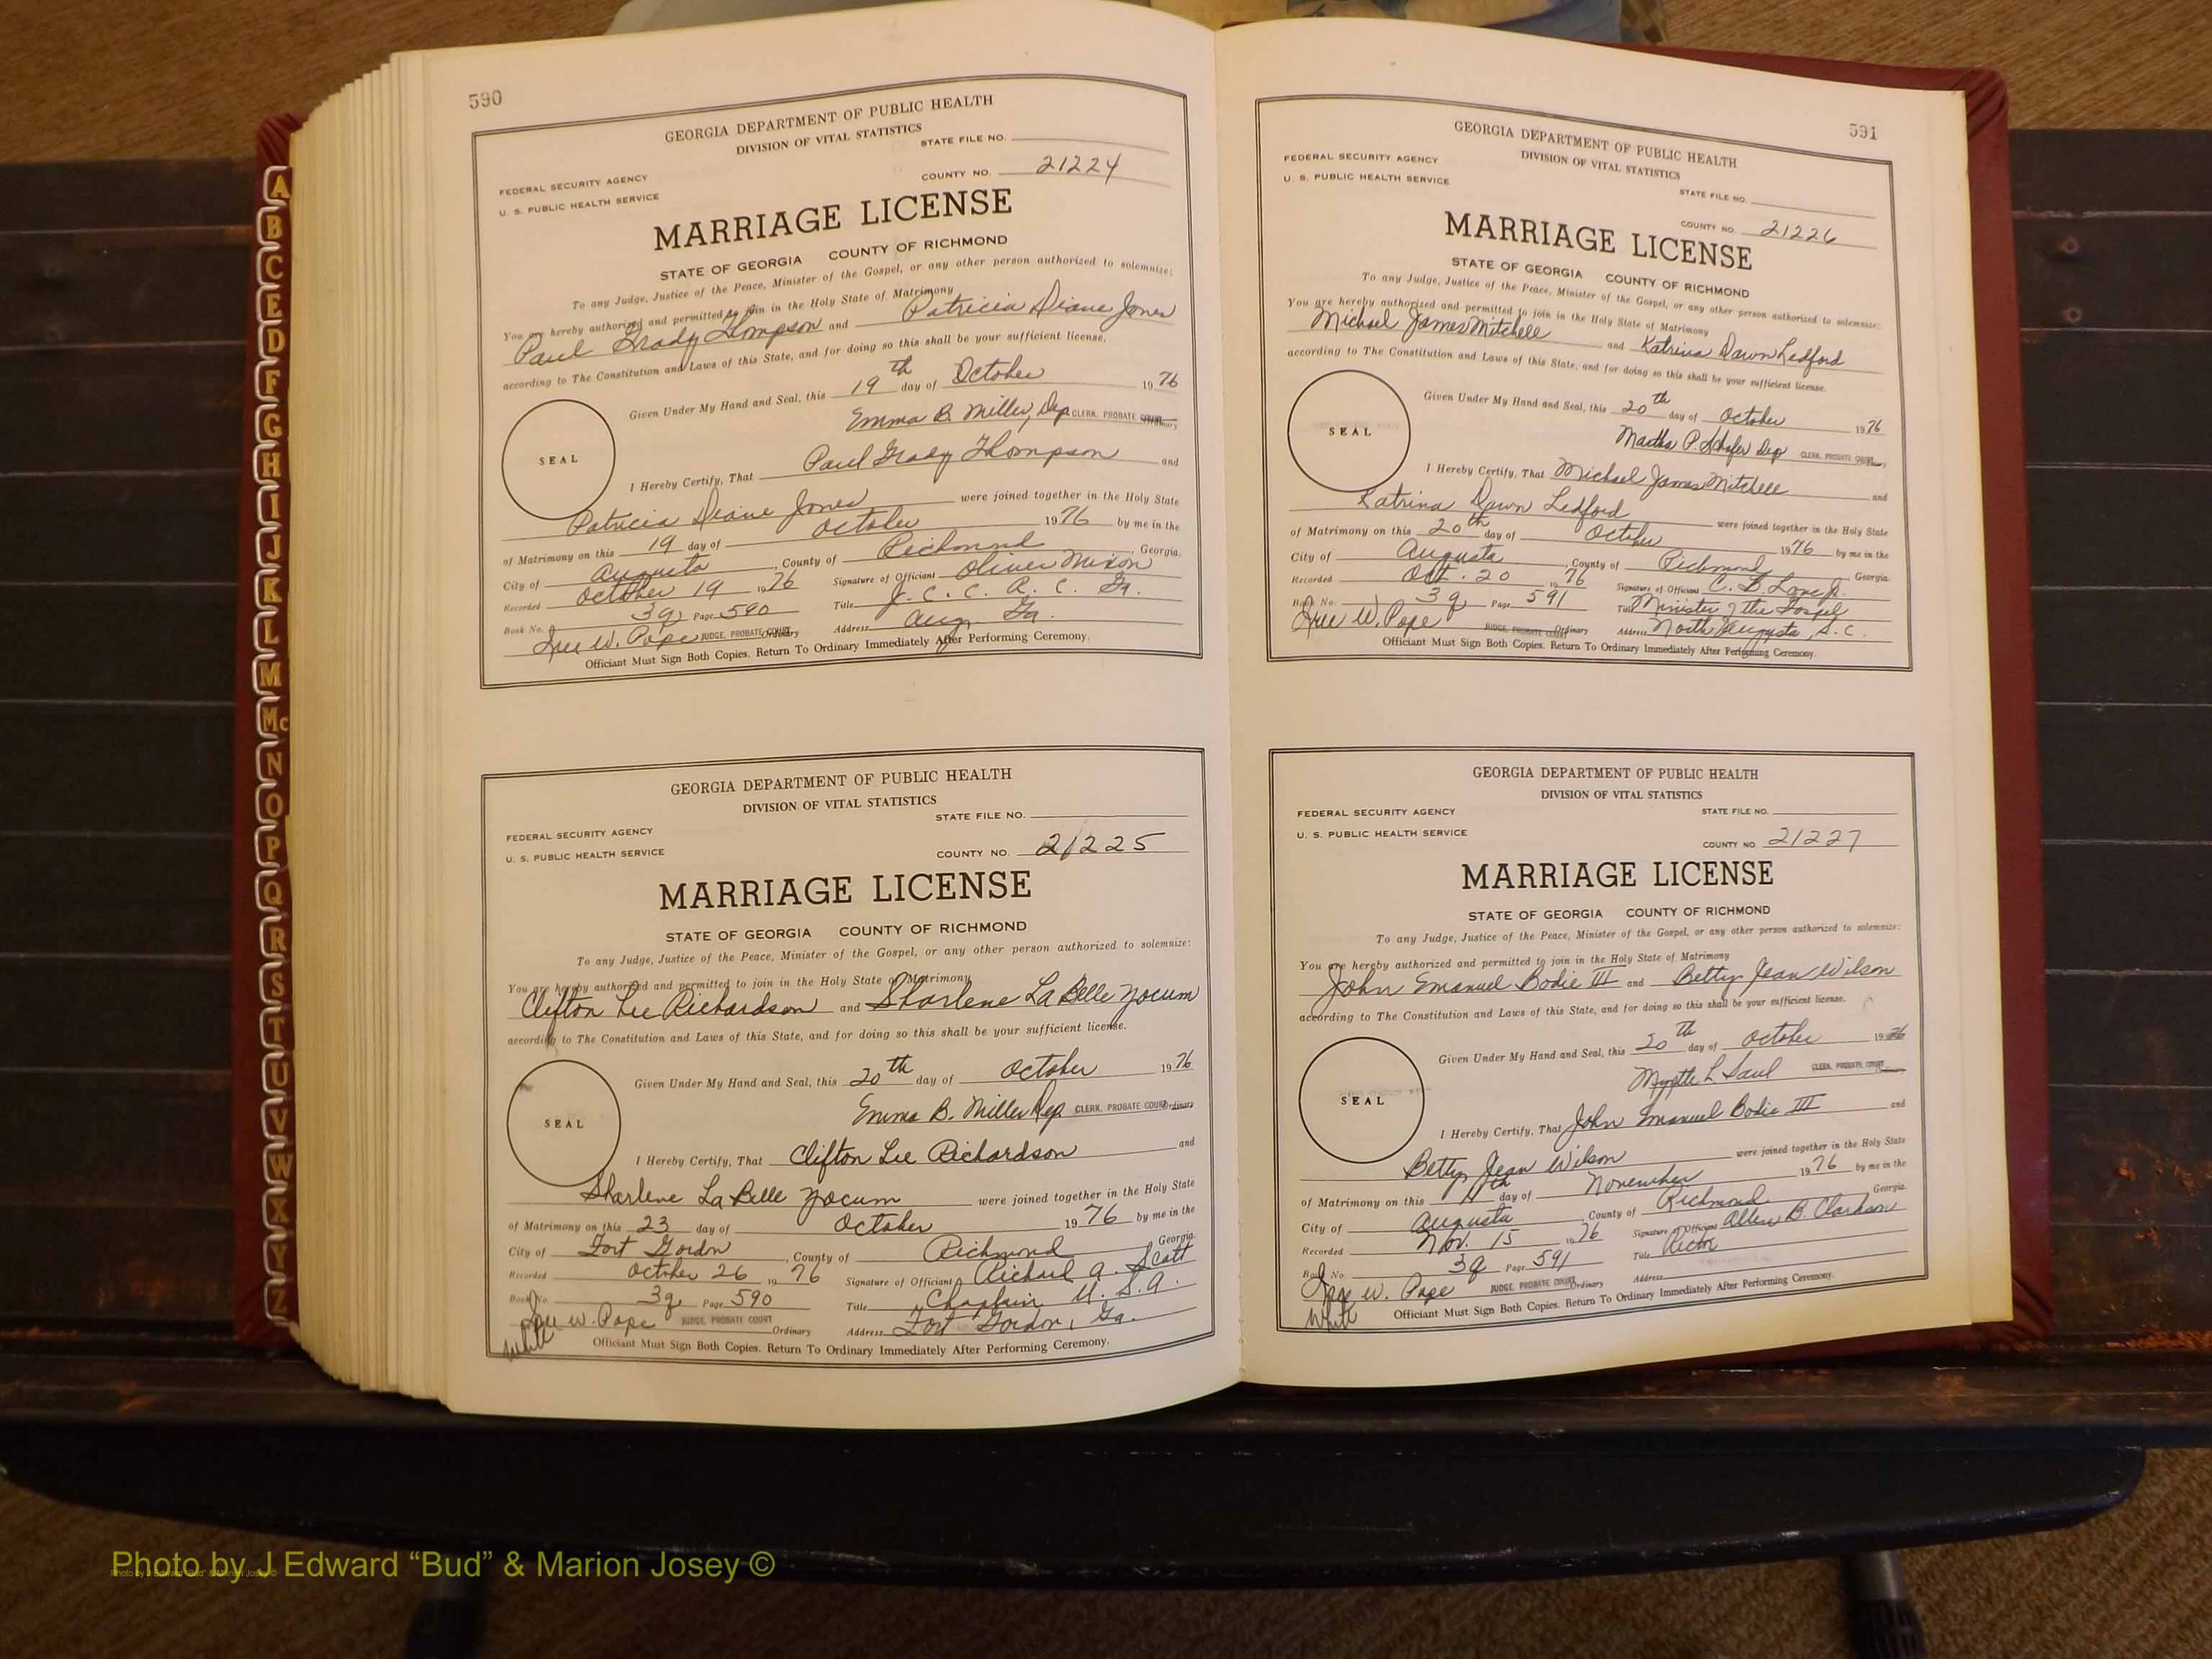 590
GEORGIA DEPARTMENT OF PUBLIC HEALTH
DIVISION OF VITAL STATISTICS
STATE FILE NO.
FEDERAL SECURITY AGENCY
COUNTY NO. 21224
U. S. PUBLIC HEALTH SERVICE
MARRIAGE LICENSE
STATE OF GEORGIA COUNTY OF RICHMOND
To any Judge, Justice of the Peace, Minister of the Gospel, or any other person authorized to solemnize:
You are hereby authorized and permitted to join in the Holy State of Matrimony
Paul Grady Thompson and Patricia Diane Jones
according to The Constitution and Laws of this State, and for doing so this shall be your sufficient license.
Given Under My Hand and Seal, this 19th day of October 1976
Emma B. Miller, Dep CLERK, PROBATE COURT Ordinary
SEAL
I Hereby Certify, That Paul Grady Thompson and
Patricia Diane Jones were joined together in the Holy State
of Matrimony on this 19 day of October 1976 by me in the
City of Augusta, County of Richmond, Georgia.
Recorded October 19 1976 Signature of Officiant Oliver Mixon
Book No. 3q Page 590 Title J. C. C. A. C. Ga.
W. Pope JUDGE, PROBATE COURT Ordinary Address Aug. Ga.
Officiant Must Sign Both Copies. Return To Ordinary Immediately After Performing Ceremony.
GEORGIA DEPARTMENT OF PUBLIC HEALTH
DIVISION OF VITAL STATISTICS
STATE FILE NO.
FEDERAL SECURITY AGENCY
COUNTY NO. 21225
U. S. PUBLIC HEALTH SERVICE
MARRIAGE LICENSE
STATE OF GEORGIA COUNTY OF RICHMOND
To any Judge, Justice of the Peace, Minister of the Gospel, or any other person authorized to solemnize:
You are hereby authorized and permitted to join in the Holy State of Matrimony
Clifton Lee Richardson and Sharlene La Belle Yocum
according to The Constitution and Laws of this State, and for doing so this shall be your sufficient license.
Given Under My Hand and Seal, this 20th day of October 1976
Emma B. Miller Dep CLERK, PROBATE COURT Ordinary
SEAL
I Hereby Certify, That Clifton Lee Richardson and
Sharlene La Belle Yocum were joined together in the Holy State
of Matrimony on this 23 day of October 1976 by me in the
City of Fort Gordon, County of Richmond Georgia.
Recorded October 26 1976 Signature of Officiant Richard A. Scott
Book No. 3q Page 590 Title Chaplain U.S.A.
W. Pope JUDGE, PROBATE COURT Ordinary Address Fort Gordon, Ga.
White
Officiant Must Sign Both Copies. Return To Ordinary Immediately After Performing Ceremony.
591
GEORGIA DEPARTMENT OF PUBLIC HEALTH
DIVISION OF VITAL STATISTICS
FEDERAL SECURITY AGENCY
U. S. PUBLIC HEALTH SERVICE
STATE FILE NO.
COUNTY NO. 21226
MARRIAGE LICENSE
STATE OF GEORGIA COUNTY OF RICHMOND
To any Judge, Justice of the Peace, Minister of the Gospel, or any other person authorized to solemnize:
You are hereby authorized and permitted to join in the Holy State of Matrimony
Michael James Mitchell and Katrina Dawn Ledford
according to The Constitution and Laws of this State, and for doing so this shall be your sufficient license.
Given Under My Hand and Seal, this 20th day of October 1976
Martha P. Schafer Dep CLERK, PROBATE COURT
SEAL
I Hereby Certify, That Michael James Mitchell and
Katrina Dawn Ledford were joined together in the Holy State
of Matrimony on this 20th day of October 1976 by me in the
City of Augusta, County of Richmond, Georgia.
Recorded Oct. 20 1976 Signature of Officiant C. B. Love Jr.
Book No. 3q Page 591 Title Minister of the Gospel
W. Pope JUDGE, PROBATE COURT Ordinary Address North Augusta, S.C.
Officiant Must Sign Both Copies. Return To Ordinary Immediately After Performing Ceremony.
GEORGIA DEPARTMENT OF PUBLIC HEALTH
DIVISION OF VITAL STATISTICS
FEDERAL SECURITY AGENCY STATE FILE NO.
U. S. PUBLIC HEALTH SERVICE
COUNTY NO. 21227
MARRIAGE LICENSE
STATE OF GEORGIA COUNTY OF RICHMOND
To any Judge, Justice of the Peace, Minister of the Gospel, or any other person authorized to solemnize:
You are hereby authorized and permitted to join in the Holy State of Matrimony
John Emanuel Bodie III and Betty Jean Wilson
according to The Constitution and Laws of this State, and for doing so this shall be your sufficient license.
Given Under My Hand and Seal, this 20th day of October 1976
Myrtle L. Saul CLERK, PROBATE COURT
SEAL
I Hereby Certify, That John Emanuel Bodie III and
Betty Jean Wilson were joined together in the Holy State
of Matrimony on this 11th day of November 1976 by me in the
City of Augusta, County of Richmond Georgia.
Recorded Nov. 15 1976 Signature of Officiant Allen B. Clarkson
Book No. 3q Page 591 Title Rector
W. Pope JUDGE, PROBATE COURT Ordinary Address
White
Officiant Must Sign Both Copies. Return To Ordinary Immediately After Performing Ceremony.
A
B
C
E
D
F
G
H
I
J
K
L
M
Mc
N
O
P
Q
R
S
T
U
V
W
X
Y
Z
Photo by J Edward “Bud” & Marion Josey ©
Photo by J Edward “Bud” & Marion Josey ©